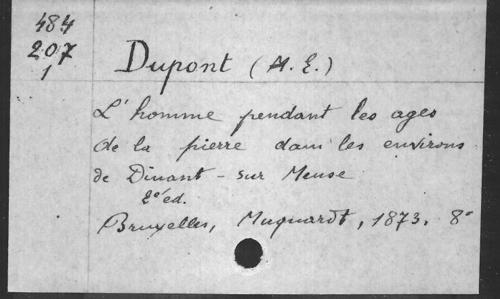 484
207
1
Dupont (A. E.)
L'homme pendant les ages
de la pierre dans les environs
de Dinant - sur Meuse
2e éd.
Bruxelles, Muquardt, 1873. 8°